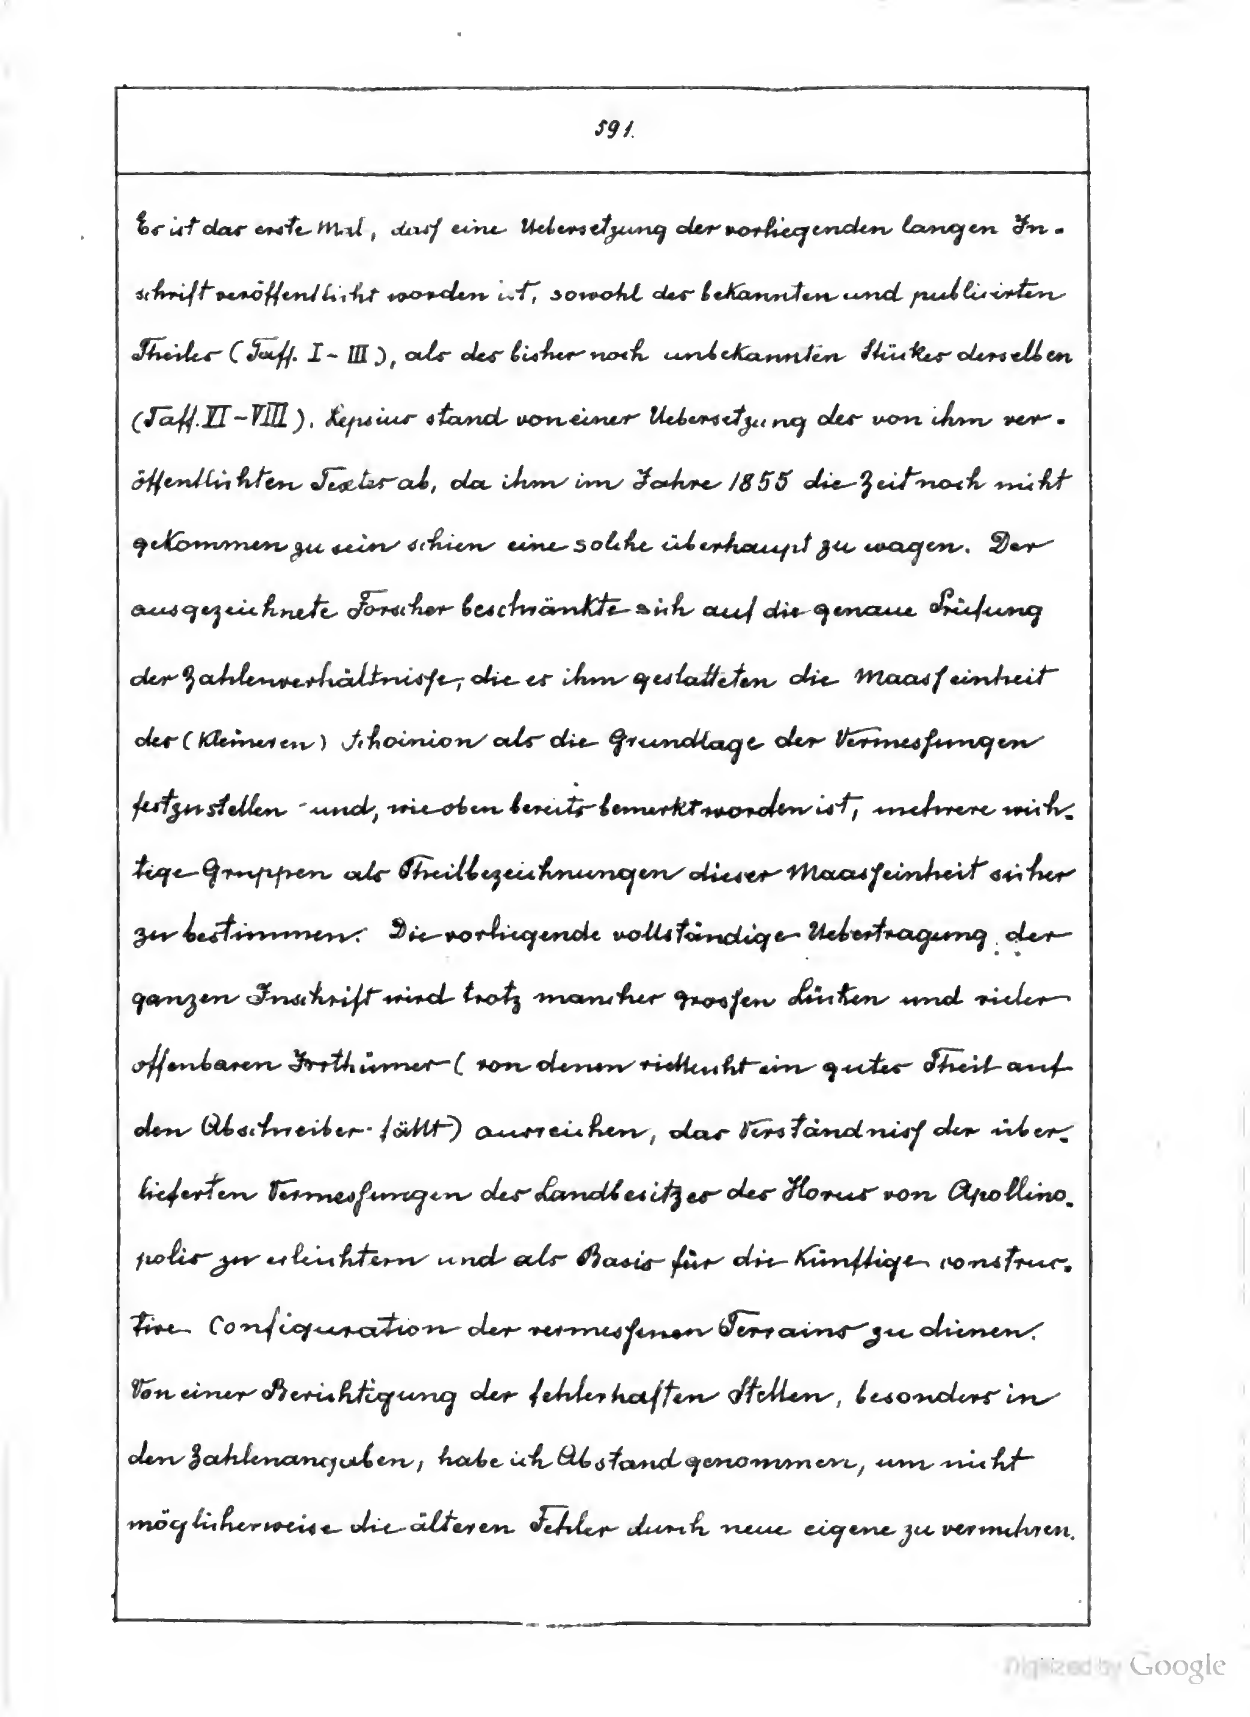 591.
Es ist das erste Mal, dass eine Uebersetzung der vorliegenden langen In-
schrift veröffentlicht worden ist, sowohl des bekannten und publicirten
Theiles (Taff. I-III), als des bisher noch unbekannten Stückes derselben
(Taff. VI-VIII). Lepsius stand von einer Uebersetzung des von ihm ver-
öffentlichten Textes ab, da ihm im Jahre 1855 die Zeit noch nicht
gekommen zu sein schien eine solche überhaupt zu wagen. Der
ausgezeichnete Forscher beschränkte sich auf die genaue Prüfung
der Zahlenverhältnisse, die es ihm gestatteten die Maasseinheit
des (kleineren) Schoinion als die Grundlage der Vermessungen
festzustellen und, wie oben bereits bemerkt worden ist, mehrere wich-
tige Gruppen als Theilbezeichnungen dieser Maasseinheit sicher
zu bestimmen. Die vorliegende vollständige Uebertragung der
ganzen Inschrift wird trotz mancher grossen Lücken und vieler
offenbaren Irrthümer (von denen vielleicht ein guter Theil auf
den Abschreiber fällt) ausreichen, das Verständniss der über-
lieferten Vermessungen des Landbesitzes des Horus von Apollino-
polis zu erleichtern und als Basis für die künftige construc-
tive Configuration der vermessenen Terrains zu dienen.
Von einer Berichtigung der fehlerhaften Stellen, besonders in
den Zahlenangaben, habe ich Abstand genommen, um nicht
möglicherweise die älteren Fehler durch neue eigene zu vermehren.
Digitized by Google